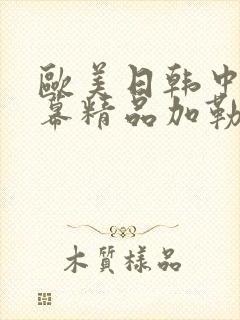 歐美日韩中
幕精品加勒
木質樣品